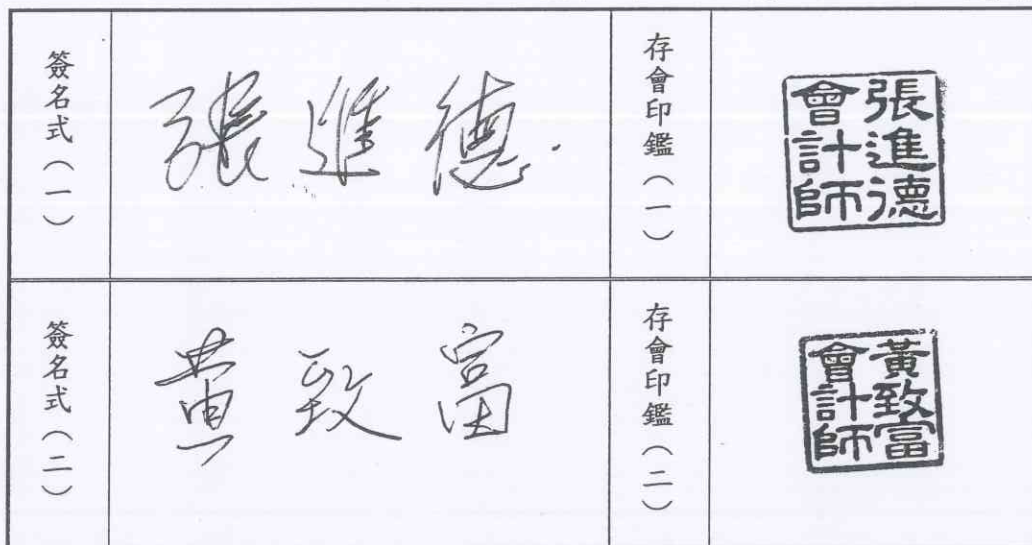 簽名式（一）
張進德
存會印鑑（一）
張進德
會計師
簽名式（二）
黃致富
存會印鑑（二）
黃致富
會計師